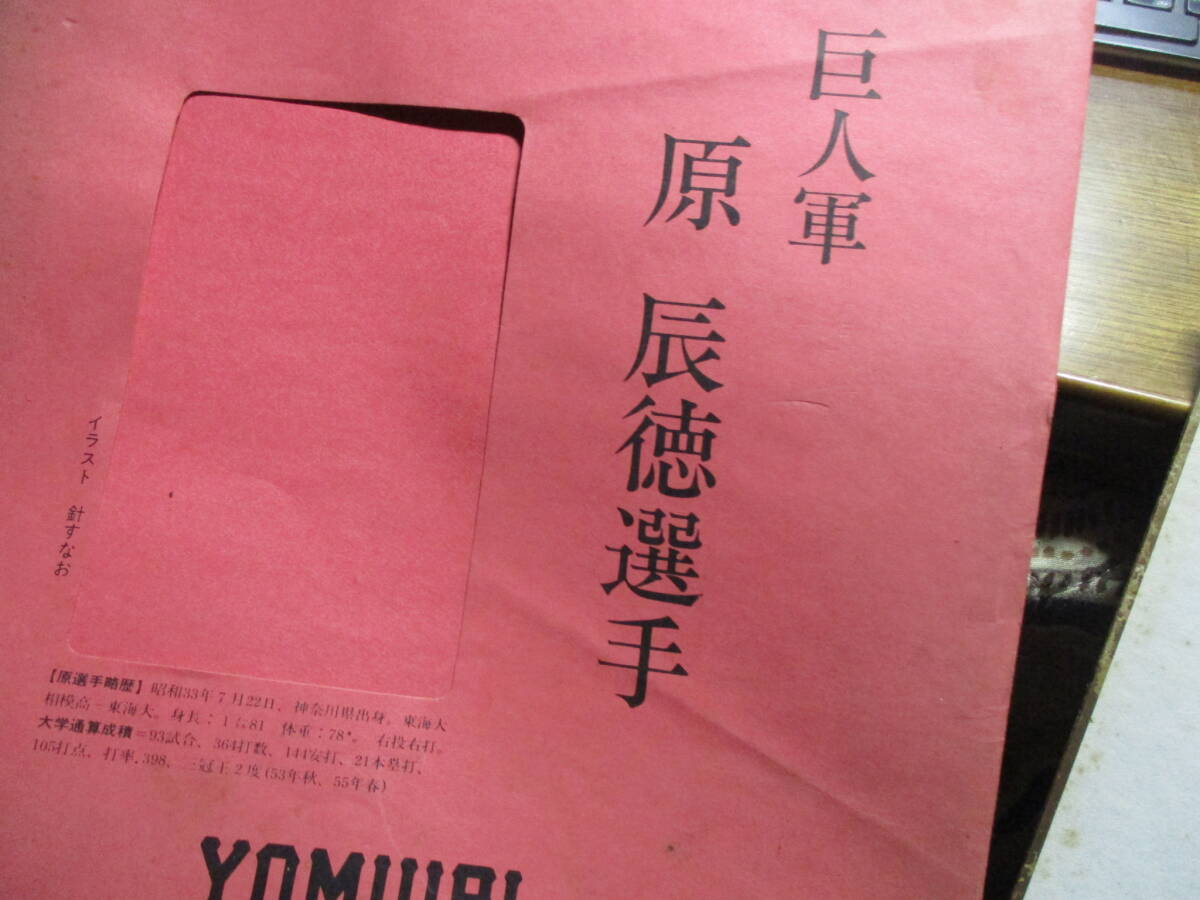 巨人軍
原 辰徳選手
イラスト 針すなお
【原選手略歴】昭和33年7月22日、神奈川県出身。東海大
相模高－東海大。身長：1㍍81 体重：78㌔。右投右打。
大学通算成積＝93試合、364打数、144安打、21本塁打、
105打点、打率.398、三冠王2度(53年秋、55年春)
YOMIURI